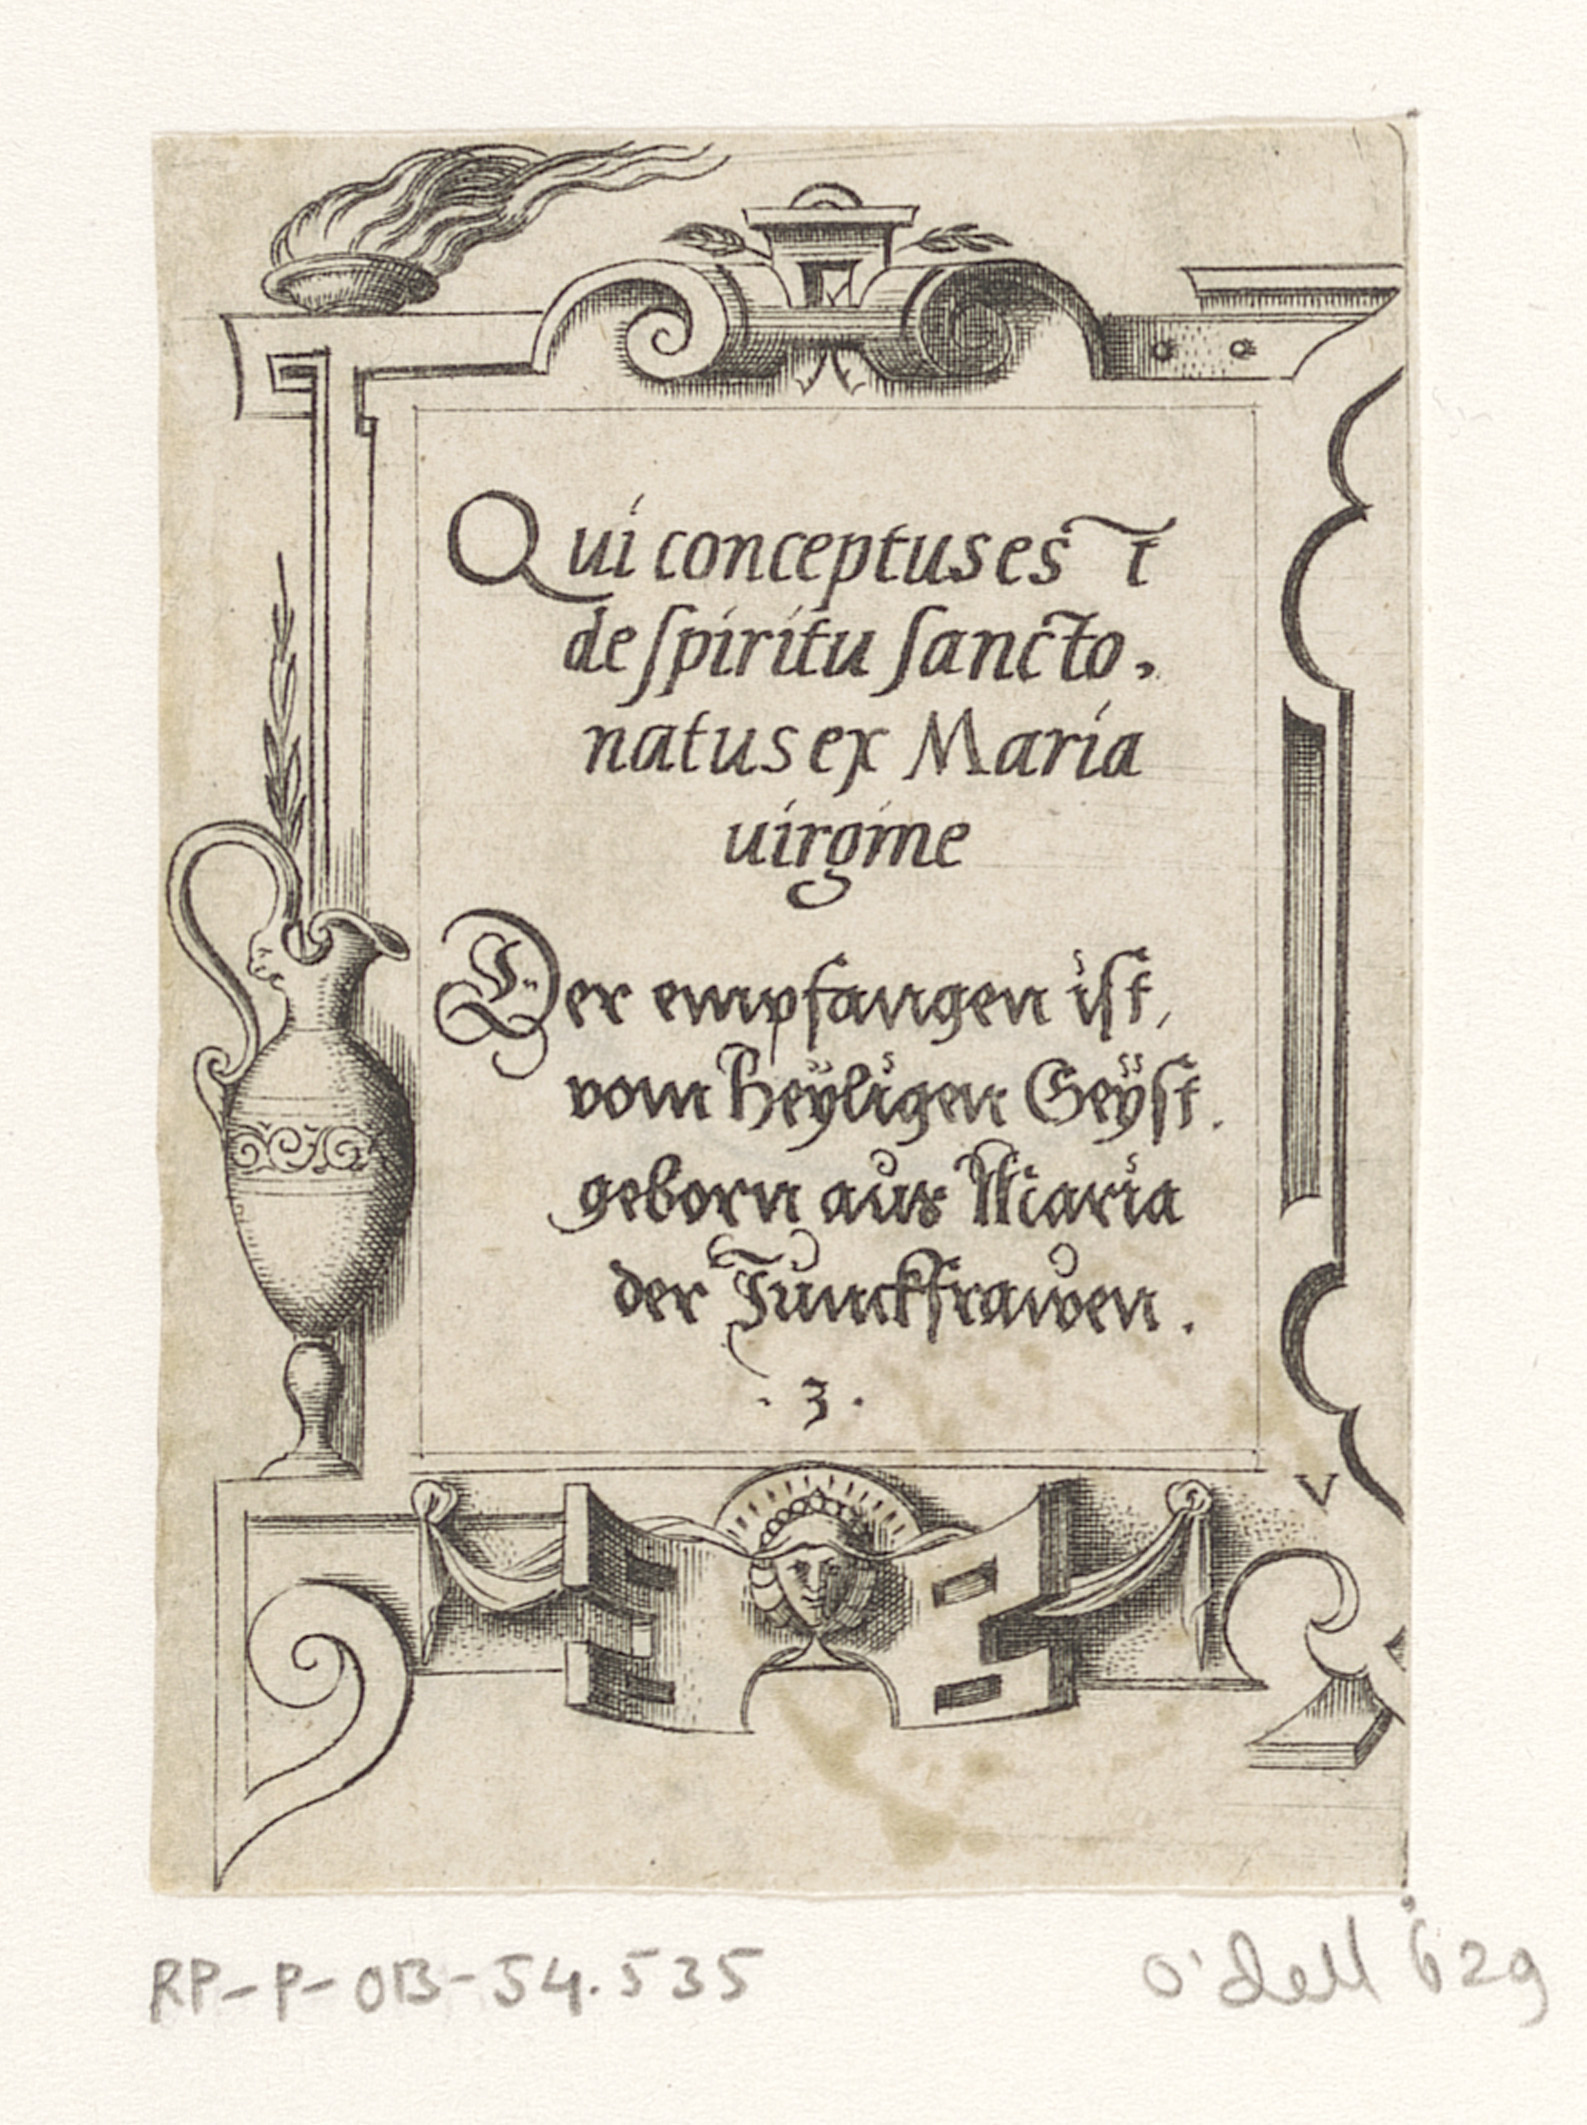 Qui conceptus est
de ſpiritu ſancto,
natus ex Maria
uirgine
Der empfangen ist,
vom Heÿligen Geÿst.
geborn aus Maria
der Junckfrawen.
. 3 .
V
RP-P-OB-54.535
O'Dell 629